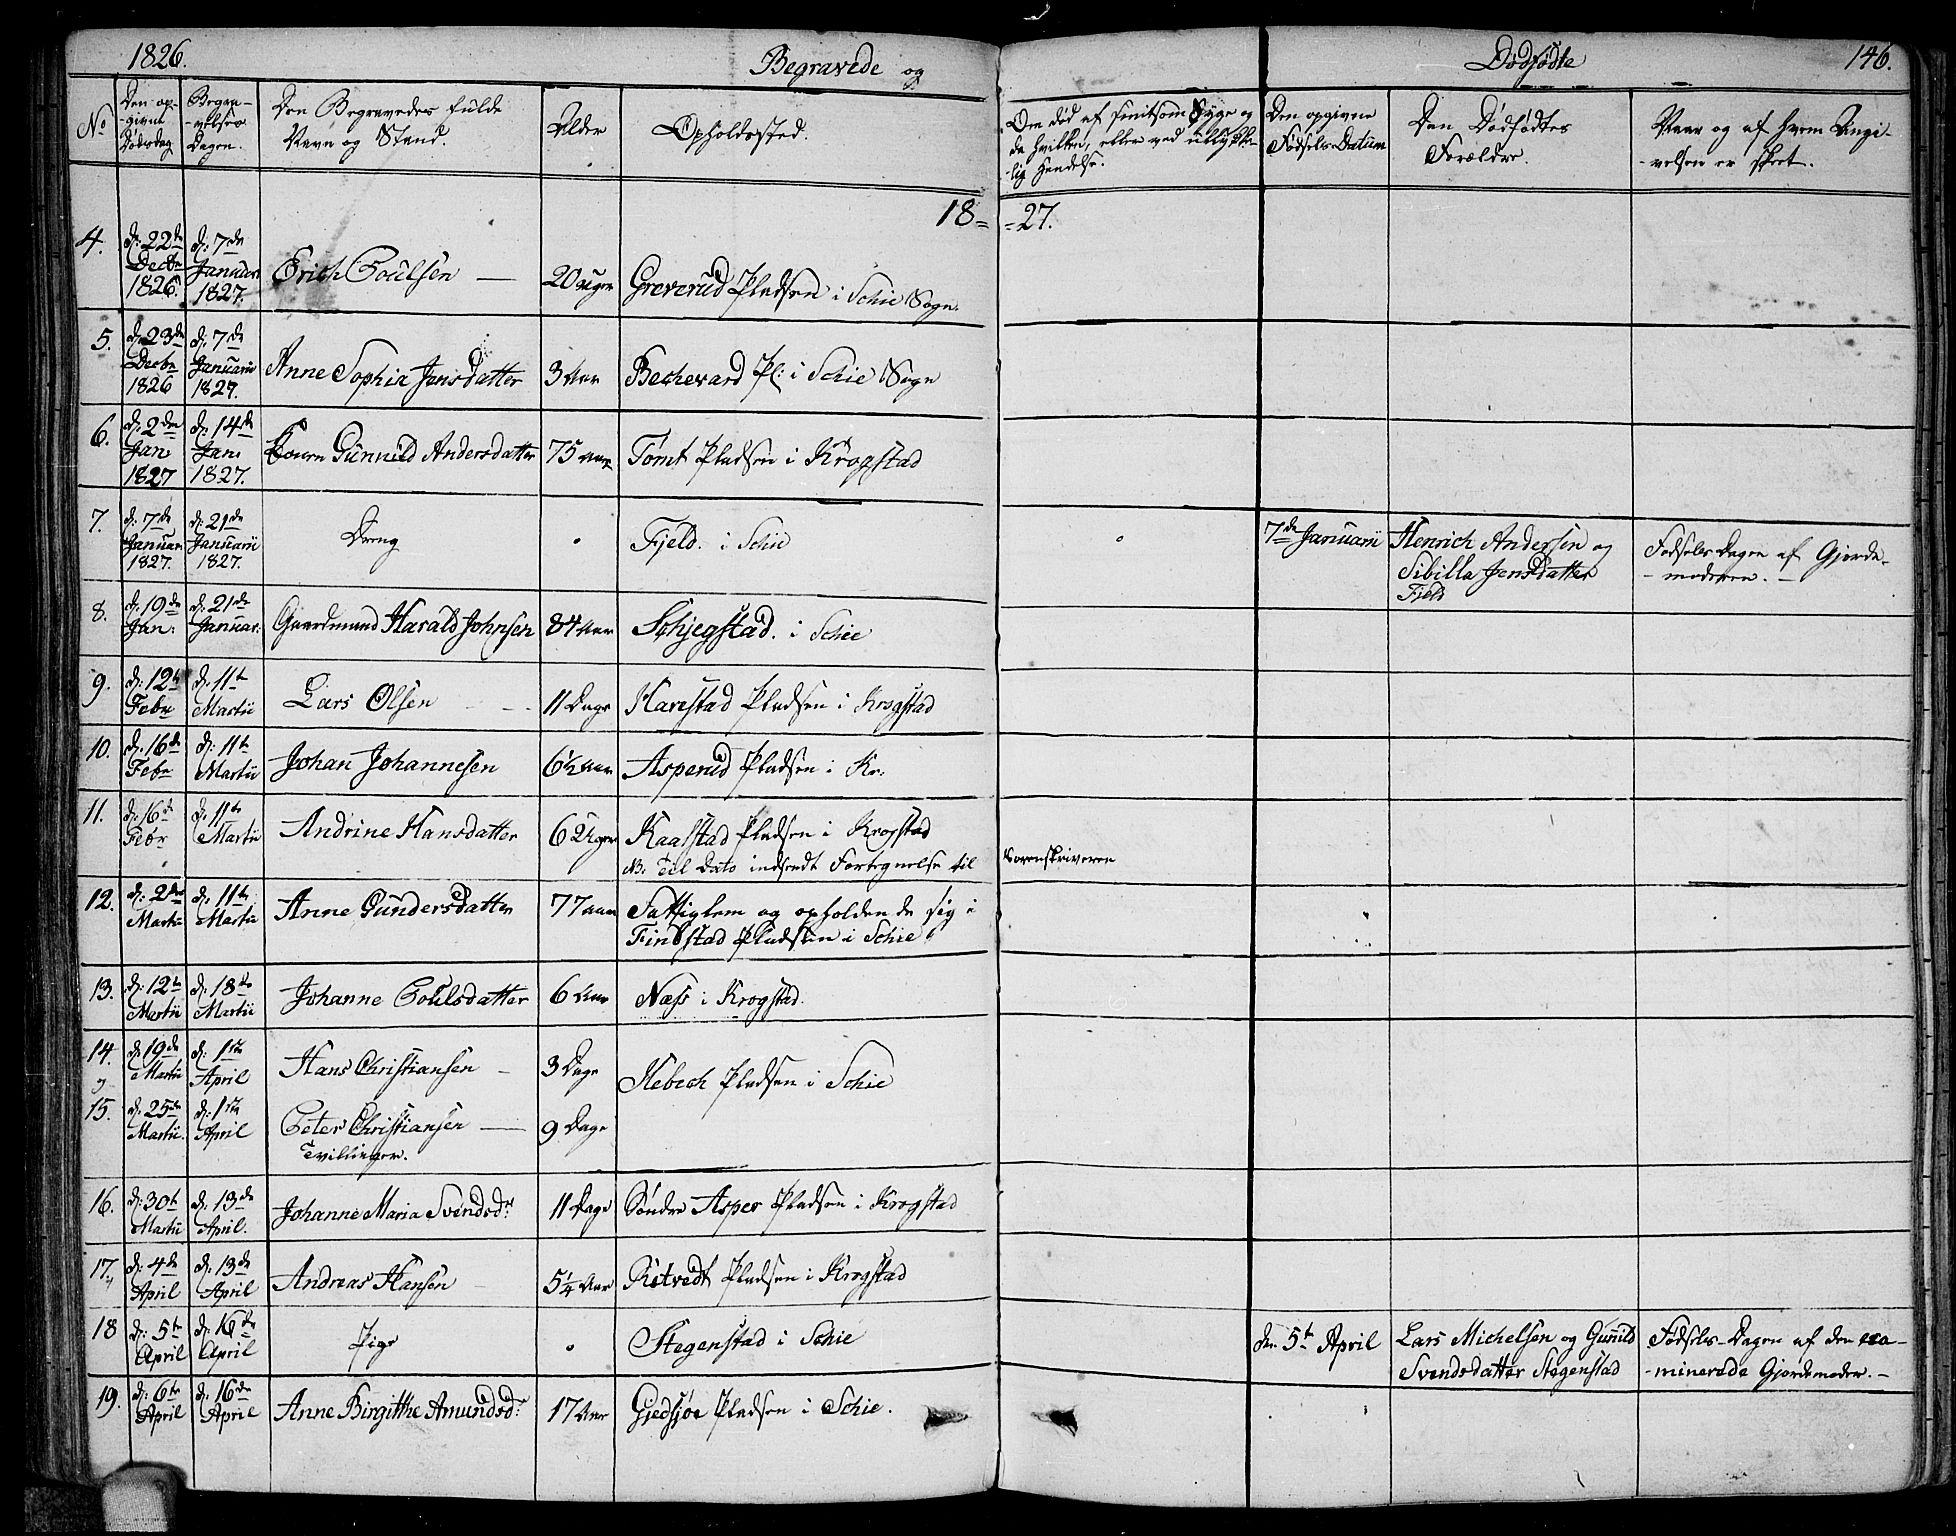 1826.
Begravede og
Dødfødte
146.
No
Den op-
-givne
Dødsdag
Begra-
-velses
Dagen.
Den Begravedes fulde
Navn og Stand.
Alder
Opholdssted.
Om død af smitsom Syge og
da hvilken, eller ved ulykke-
-lig Hendelse.
Den opgivne
Fødsels-Datum
Den Dødfødtes
Forældre.
Naar og af hvem Angi-
-velsen er skeet.
18=
=27.
4.
d: 22de
Decbr
1826.
d: 7de
Januar
1827.
Erich Poulsen —
20 uger
Greverud Pladsen i Schie Sogn.
5.
d: 23de
Decbr
1826
d: 7de
Januarii
1827.
Anne Sophia Jensdatter
3 Aar
Bechevard Pl: i Schie Sogn
6.
d: 2den
Jan
1827
d: 14de
Jan
1827.
Gunnild Andersdatter
75 Aar
Tomt Pladsen i Krogstad
7.
d: 7de
Januar
1827.
d: 21de
Januarii
1827.
Dreng
Fjeld. i Schie
7de Januarii
Henrich Andersen og
Sibilla Jensdatter
Fjeld
Fødsels Dagen af Gjorde-
-moderen. —
8.
d: 19de
Jan:
d: 21de
Januar:
Gaardmand Harald Johnsen
84 Aar
Schjegstad. i Schie
9.
d: 12te
Febr
d: 11te
Martii
Lars Olsen
11 Dage
Harestad Pladsen i Krogstad
10.
d. 16de
Febr
d: 11te
Martii
Johan Johannesen
6½ Aar
Asperud Pladsen i Kr:
11.
d: 16de
Febr
d: 11te
Martii
Andrine Hansdatter
6 Uger
Kaalstad Pladsen i Krogstad
NB. Til Dato indsendt Fortegnelse til
Sorenskriveren
12.
d: 2den
Martii
d: 11te
Martii
Anne Gundersdatter
77 Aar
Fattiglem og opholdende sig i
Finbstad Pladsen i Schie
13.
d: 12te
Martii
d: 18de
Martii
Johanne Poulsdatter
6 Aar
Næss i Krogstad.
14.
d: 19de
Martii
d: 1ste
April
Hans Christiansen —
3 Dage
Hebech Pladsen i Schie
15.
d: 25de
Martii.
d: 1ste
April
Peter Christiansen —
9 Dage
Tvillinger.
16.
d: 30te
Martii
d: 13de
April.
Johanne Maria Svendsdr
11 Dage
Søndre Asper Pladsen i Krogstad
17.
d: 4de
April
d: 13de
April
Andreas Hansen
5¼ Aar
Retvedt Pladsen i Krogstad
18
d: 5te
April
d: 16de
April
Pige
Stegenstad i Schie
den 5te April
Lars Michelsen og Gunild
Svendsdatter Stegenstad
Fødsels-Dagen af den exa-
-minerede Gjordemoder. —
19.
d: 6te
April
d: 16de
April
Anne Birgitthe Amundsdr
17 Aar
Gjedsjøe Pladsen i Schie.